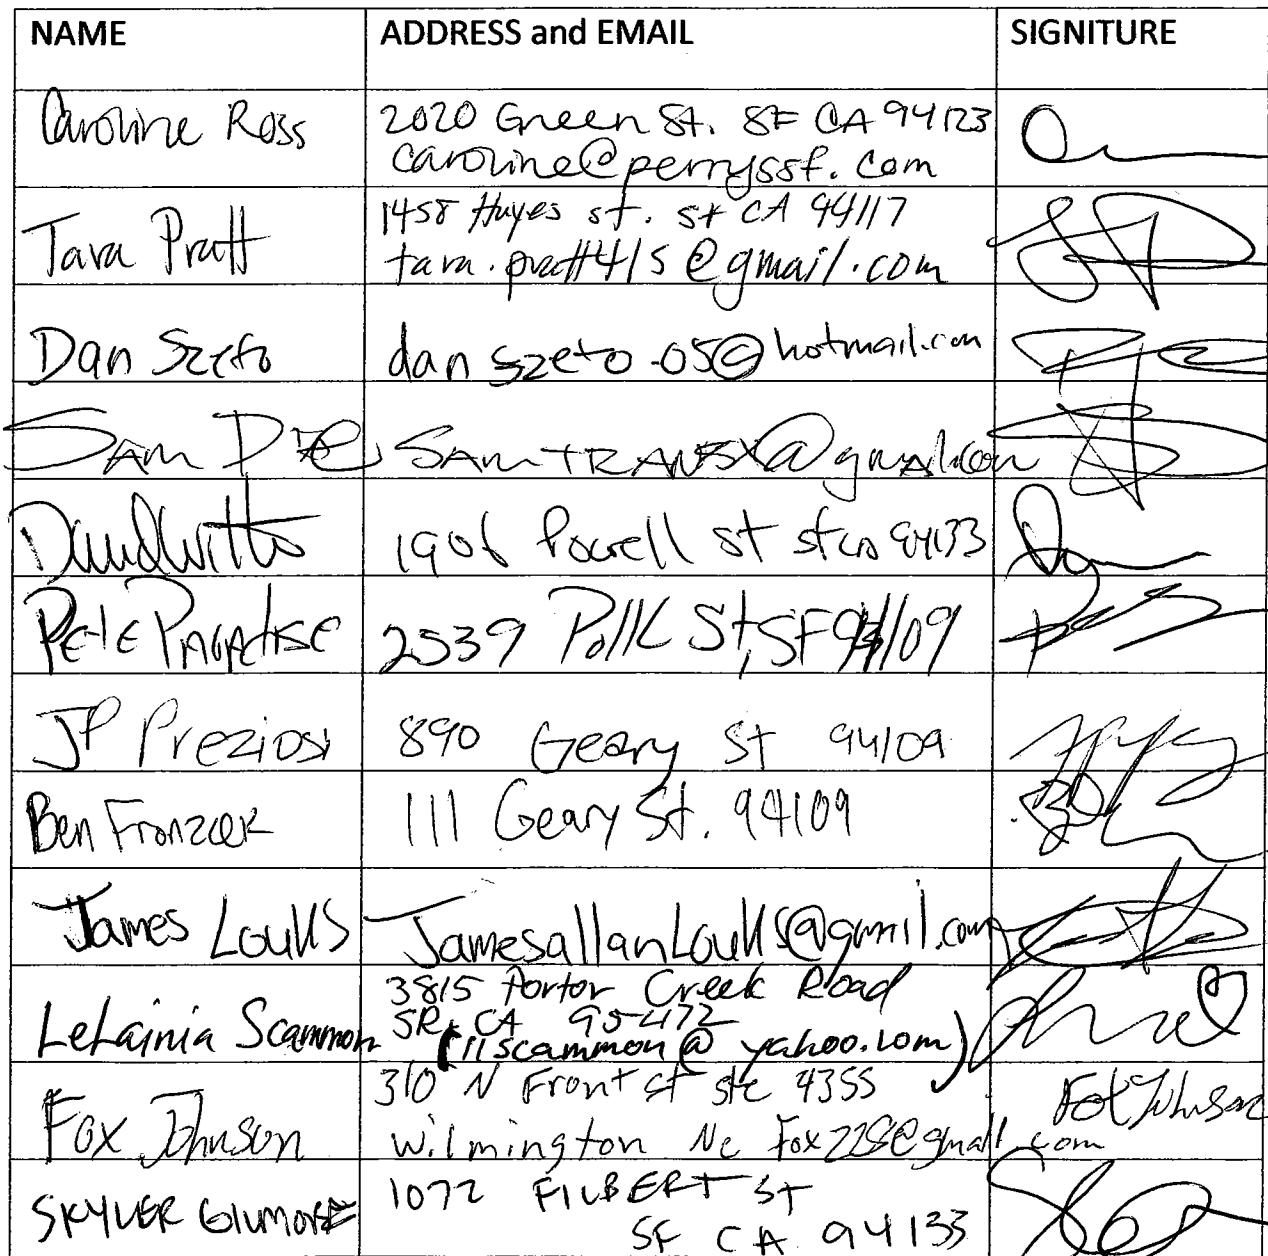 NAME ADDRESS and EMAIL SIGNITURE
Caroline Ross 2020 Green St. SF CA 94123
caroline@perryssf.com
Tara Pratt 1458 Hayes st. SF CA 94117
tara.pratt415@gmail.com
Dan Szeto danszeto-05@hotmail.com
SAM SAMTRANSX@gmail.com
David Witto 1906 Powell St 94133
Pete 2539 Polk St, SF 94109
JP Preziosi 890 Geary St 94109
Ben 111 Geary St. 94109
James Loulls JamesallanLoulls@gmail.com
LeLainia Scammon 3815 Porter Creek Road
SR, CA 95472
(llscammon@yahoo.com)
Fox Johnson 310 N Front st ste 4355 Fox Johnson
Wilmington Nc Fox228@gmail.com
SKYLER GILMORE 1072 FILBERT ST
SF CA 94133